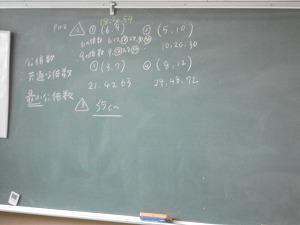 18.36.54
① (6, 9) ② (5, 10)
6の倍数 6, 12, 18
9の倍数 9, 18, 27
10, 20, 30
公倍数
共通な倍数
③ (3, 7) ④ (8, 12)
21. 42. 63
24, 48, 72
最小公倍数
35cm